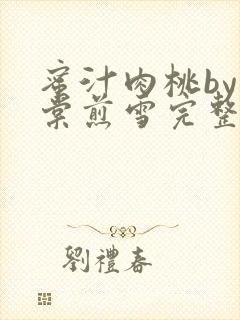 蜜汁肉桃by
棠煎雪完整
劉禮春